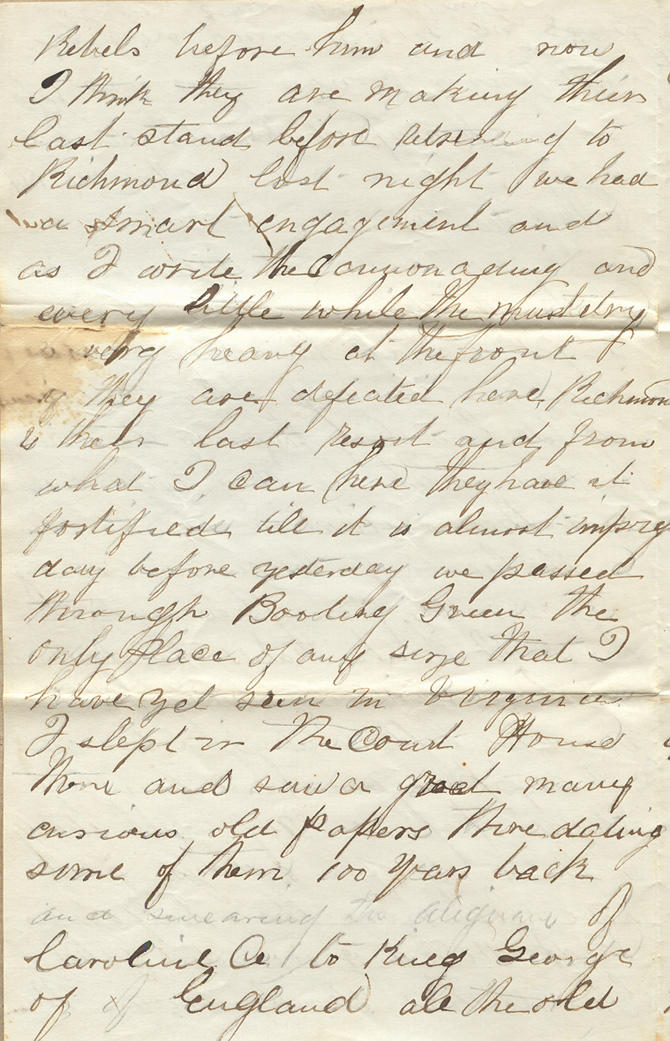 Rebels before him and now
I think they are making their
last stand before retreating to
Richmond last night we had
a smart engagement and
as I write the Cannonading and
every little while the musketry
very heavy at the front
if they are defeated here Richmon
is their last resort and from
what I can here they have it
fortified till it is almost impreg
day before yesterday we passed
through Booling Green the
only place of any size that I
have yet seen in Virginia
I slept in the Court House
there and saw a great many
curious old papers there dating
some of them 100 years back
and swearing the of
Caroline Co to King George
of of England all the old